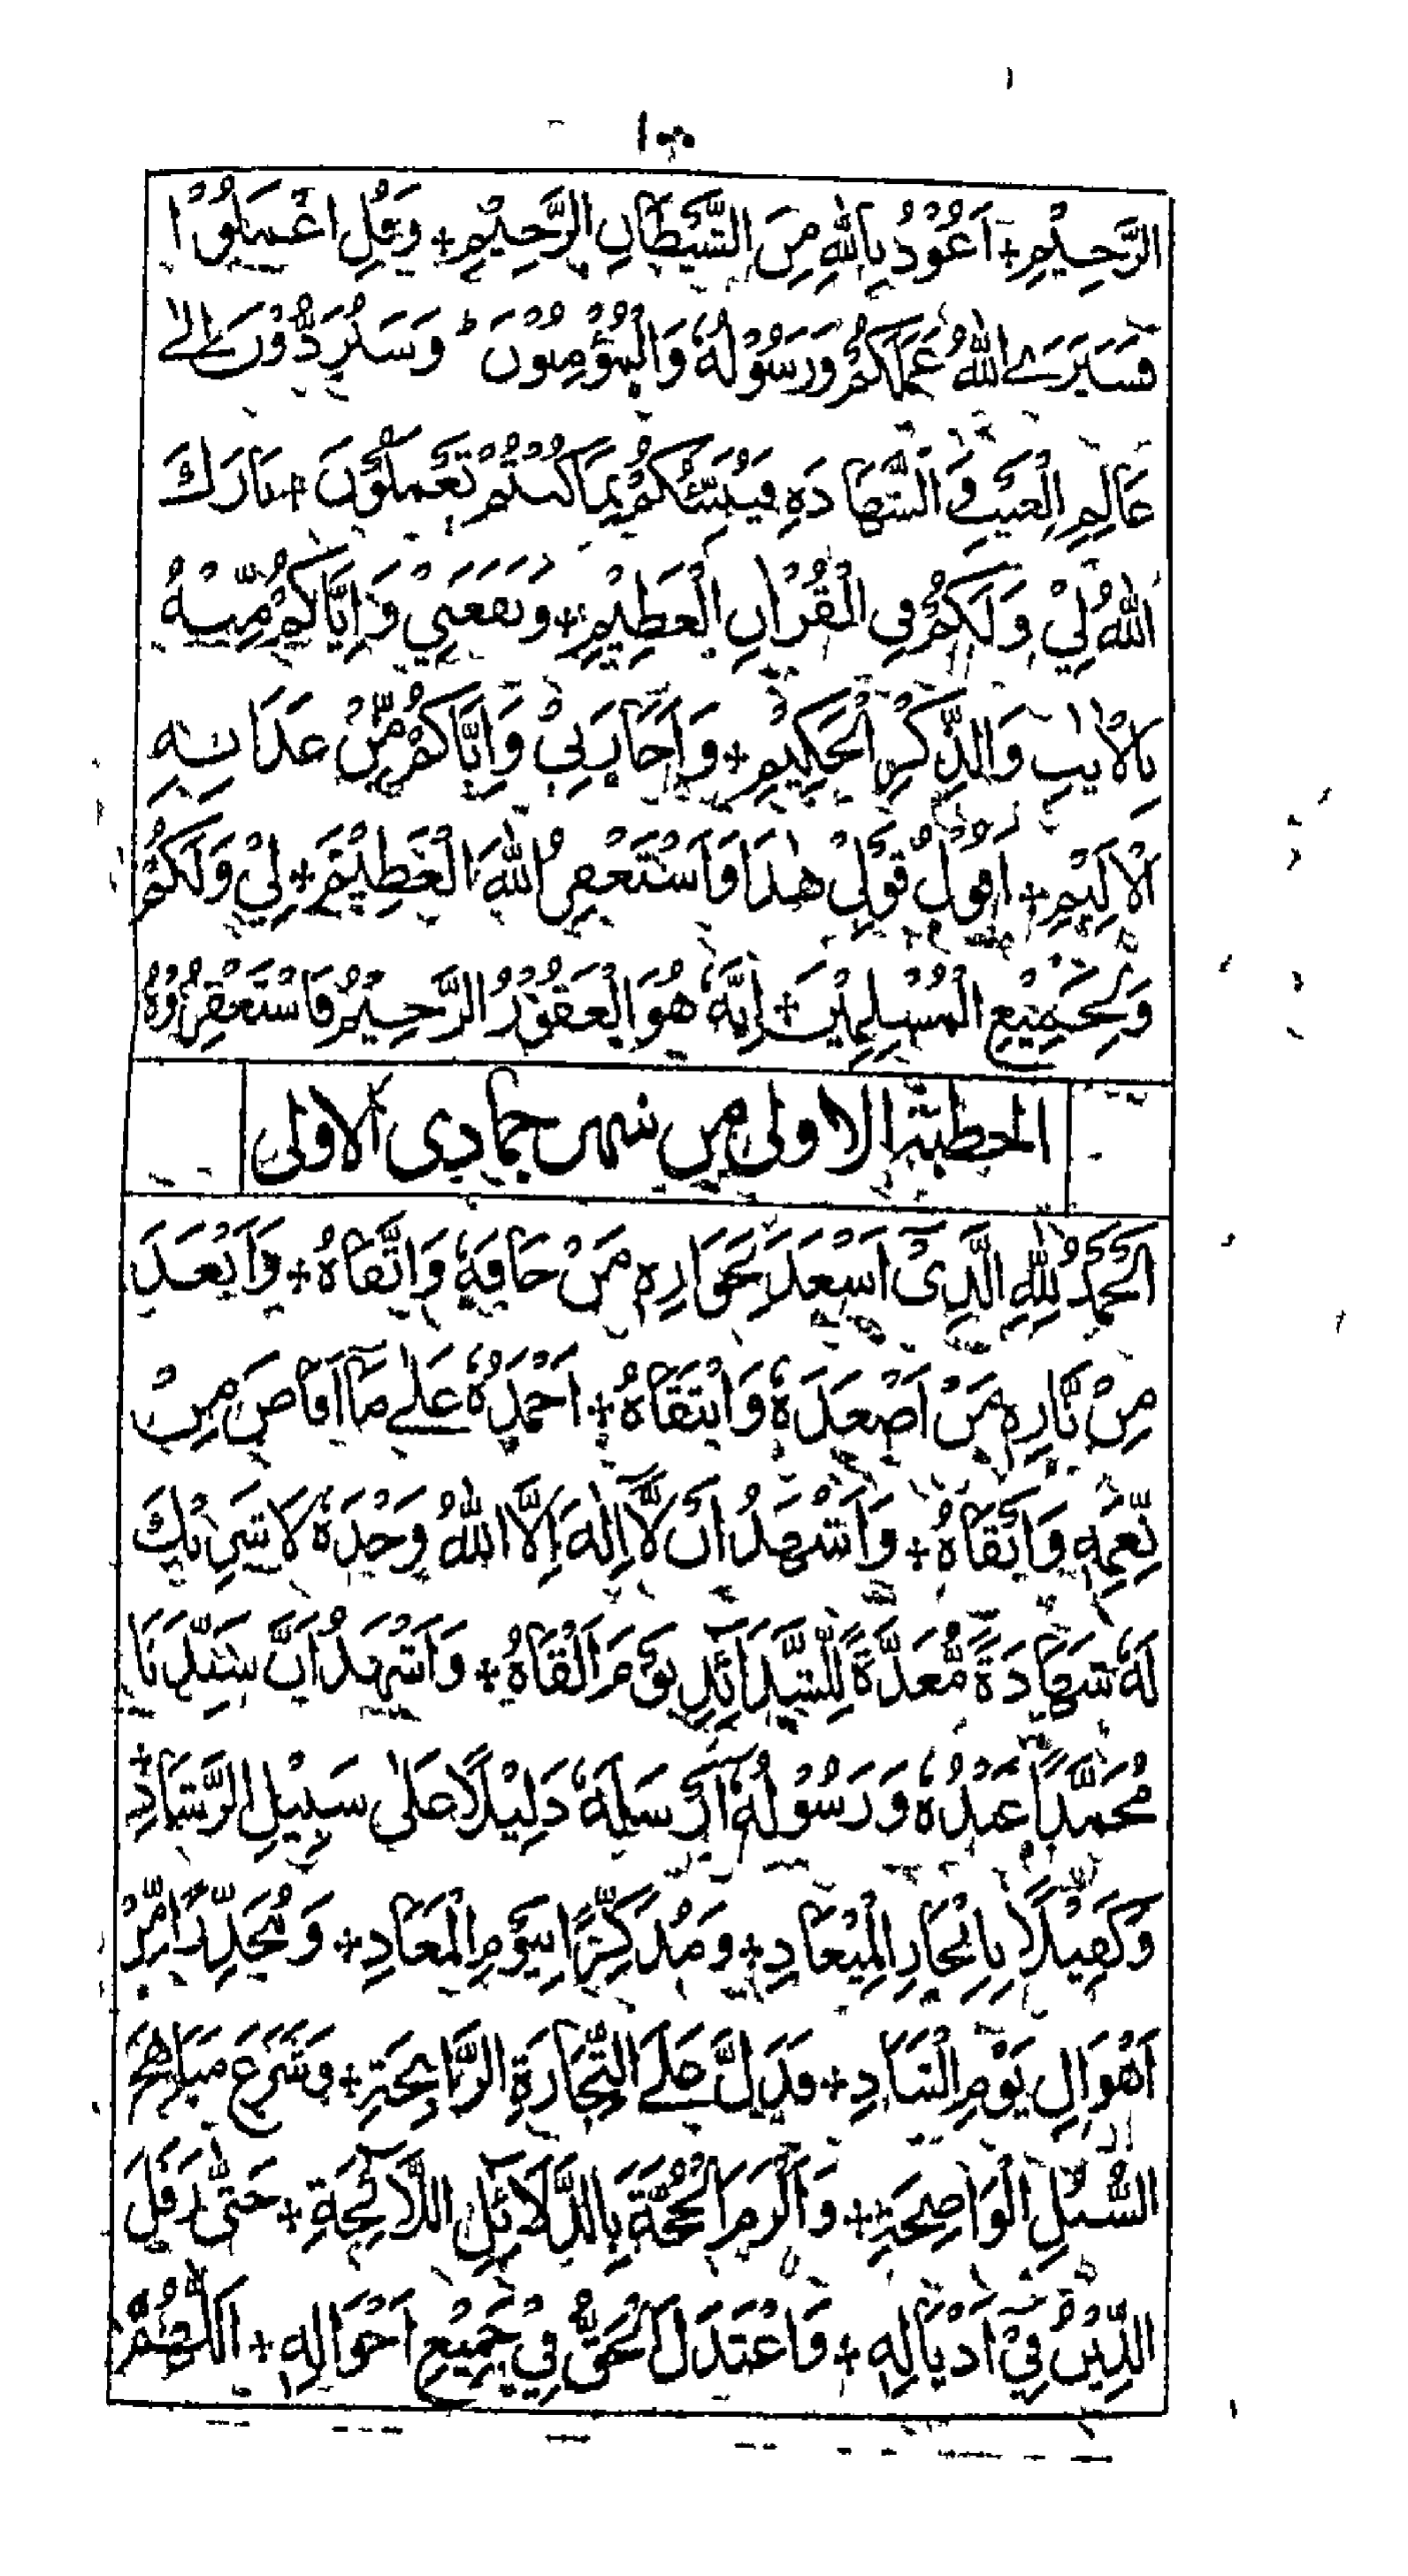 الرَّحِيْمِ + اَعُوْذُ بِاللّٰهِ مِنَ الشَّيْطَانِ الرَّجِيْمِ + وَقُلِ اعْمَلُوْا
فَسَيَرَى اللّٰهُ عَمَلَكُمْ وَرَسُوْلُهٗ وَالْمُؤْمِنُوْنَ ؕ وَسَتُرَدُّوْنَ اِلٰى
عَالِمِ الْغَيْبِ وَالشَّهَادَةِ فَيُنَبِّئُكُمْ بِمَا كُنْتُمْ تَعْمَلُوْنَ + بَارَكَ
اللّٰهُ لِيْ وَلَكُمْ فِى الْقُرْاٰنِ الْعَظِيْمِ + وَنَفَعَنِيْ وَاِيَّاكُمْ مِّنْهُ
بِالْاٰيٰتِ وَالذِّكْرِ الْحَكِيْمِ + وَاَجَارَنِيْ وَاِيَّاكُمْ مِّنْ عَذَابِهِ
الْاَلِيْمِ + اَقُوْلُ قَوْلِيْ هٰذَا وَاَسْتَغْفِرُ اللّٰهَ الْعَظِيْمَ + لِيْ وَلَكُمْ
وَلِجَمِيْعِ الْمُسْلِمِيْنَ + اِنَّهٗ هُوَ الْغَفُوْرُ الرَّحِيْمُ فَاسْتَغْفِرُوْهُ
الخطبة الاولى من شهر جمادى الاولى
اَلْحَمْدُ لِلّٰهِ الَّذِىْ اَسْعَدَ بِجَوَارِهٖ مَنْ خَافَهٗ وَاتَّقَاهُ + وَاَبْعَدَ
مِنْ نَّارِهٖ مَنْ اَصْعَدَهٗ وَانْتَقَاهُ + اَحْمَدُهٗ عَلٰى مَا اَفَاضَ مِنْ
نِّعَمِهٖ وَاَبْقَاهُ + وَاَشْهَدُ اَنْ لَّا اِلٰهَ اِلَّا اللّٰهُ وَحْدَهٗ لَا شَرِيْكَ
لَهٗ شَهَادَةً مُّعَدَّةً لِلشَّدَآئِدِ يَوْمَ اَلْقَاهُ + وَاَشْهَدُ اَنَّ سَيِّدَنَا
مُحَمَّدًا عَبْدُهٗ وَرَسُوْلُهٗ اَرْسَلَهٗ دَلِيْلًا عَلٰى سَبِيْلِ الرَّشَادِ +
وَكَفِيْلًا بِاِنْجَازِ الْمِيْعَادِ + وَمُذَكِّرًا بِيَوْمِ الْمَعَادِ + وَمُحَذِّرًا مِّنْ
اَهْوَالِ يَوْمِ التَّنَادِ + فَدَلَّ عَلَى التِّجَارَةِ الرَّابِحَةِ + وَشَرَعَ مَنَاهِجَ
السُّبُلِ الْوَاضِحَةِ + وَاَلْزَمَ الْحُجَّةَ بِالدَّلَائِلِ اللَّائِحَةِ + حَتّٰى رَفَلَ
الدِّيْنُ فِيْ اَذْيَالِهٖ + وَاعْتَدَلَ الْحَقُّ فِيْ جَمِيْعِ اَحْوَالِهٖ + اَللّٰهُمَّ